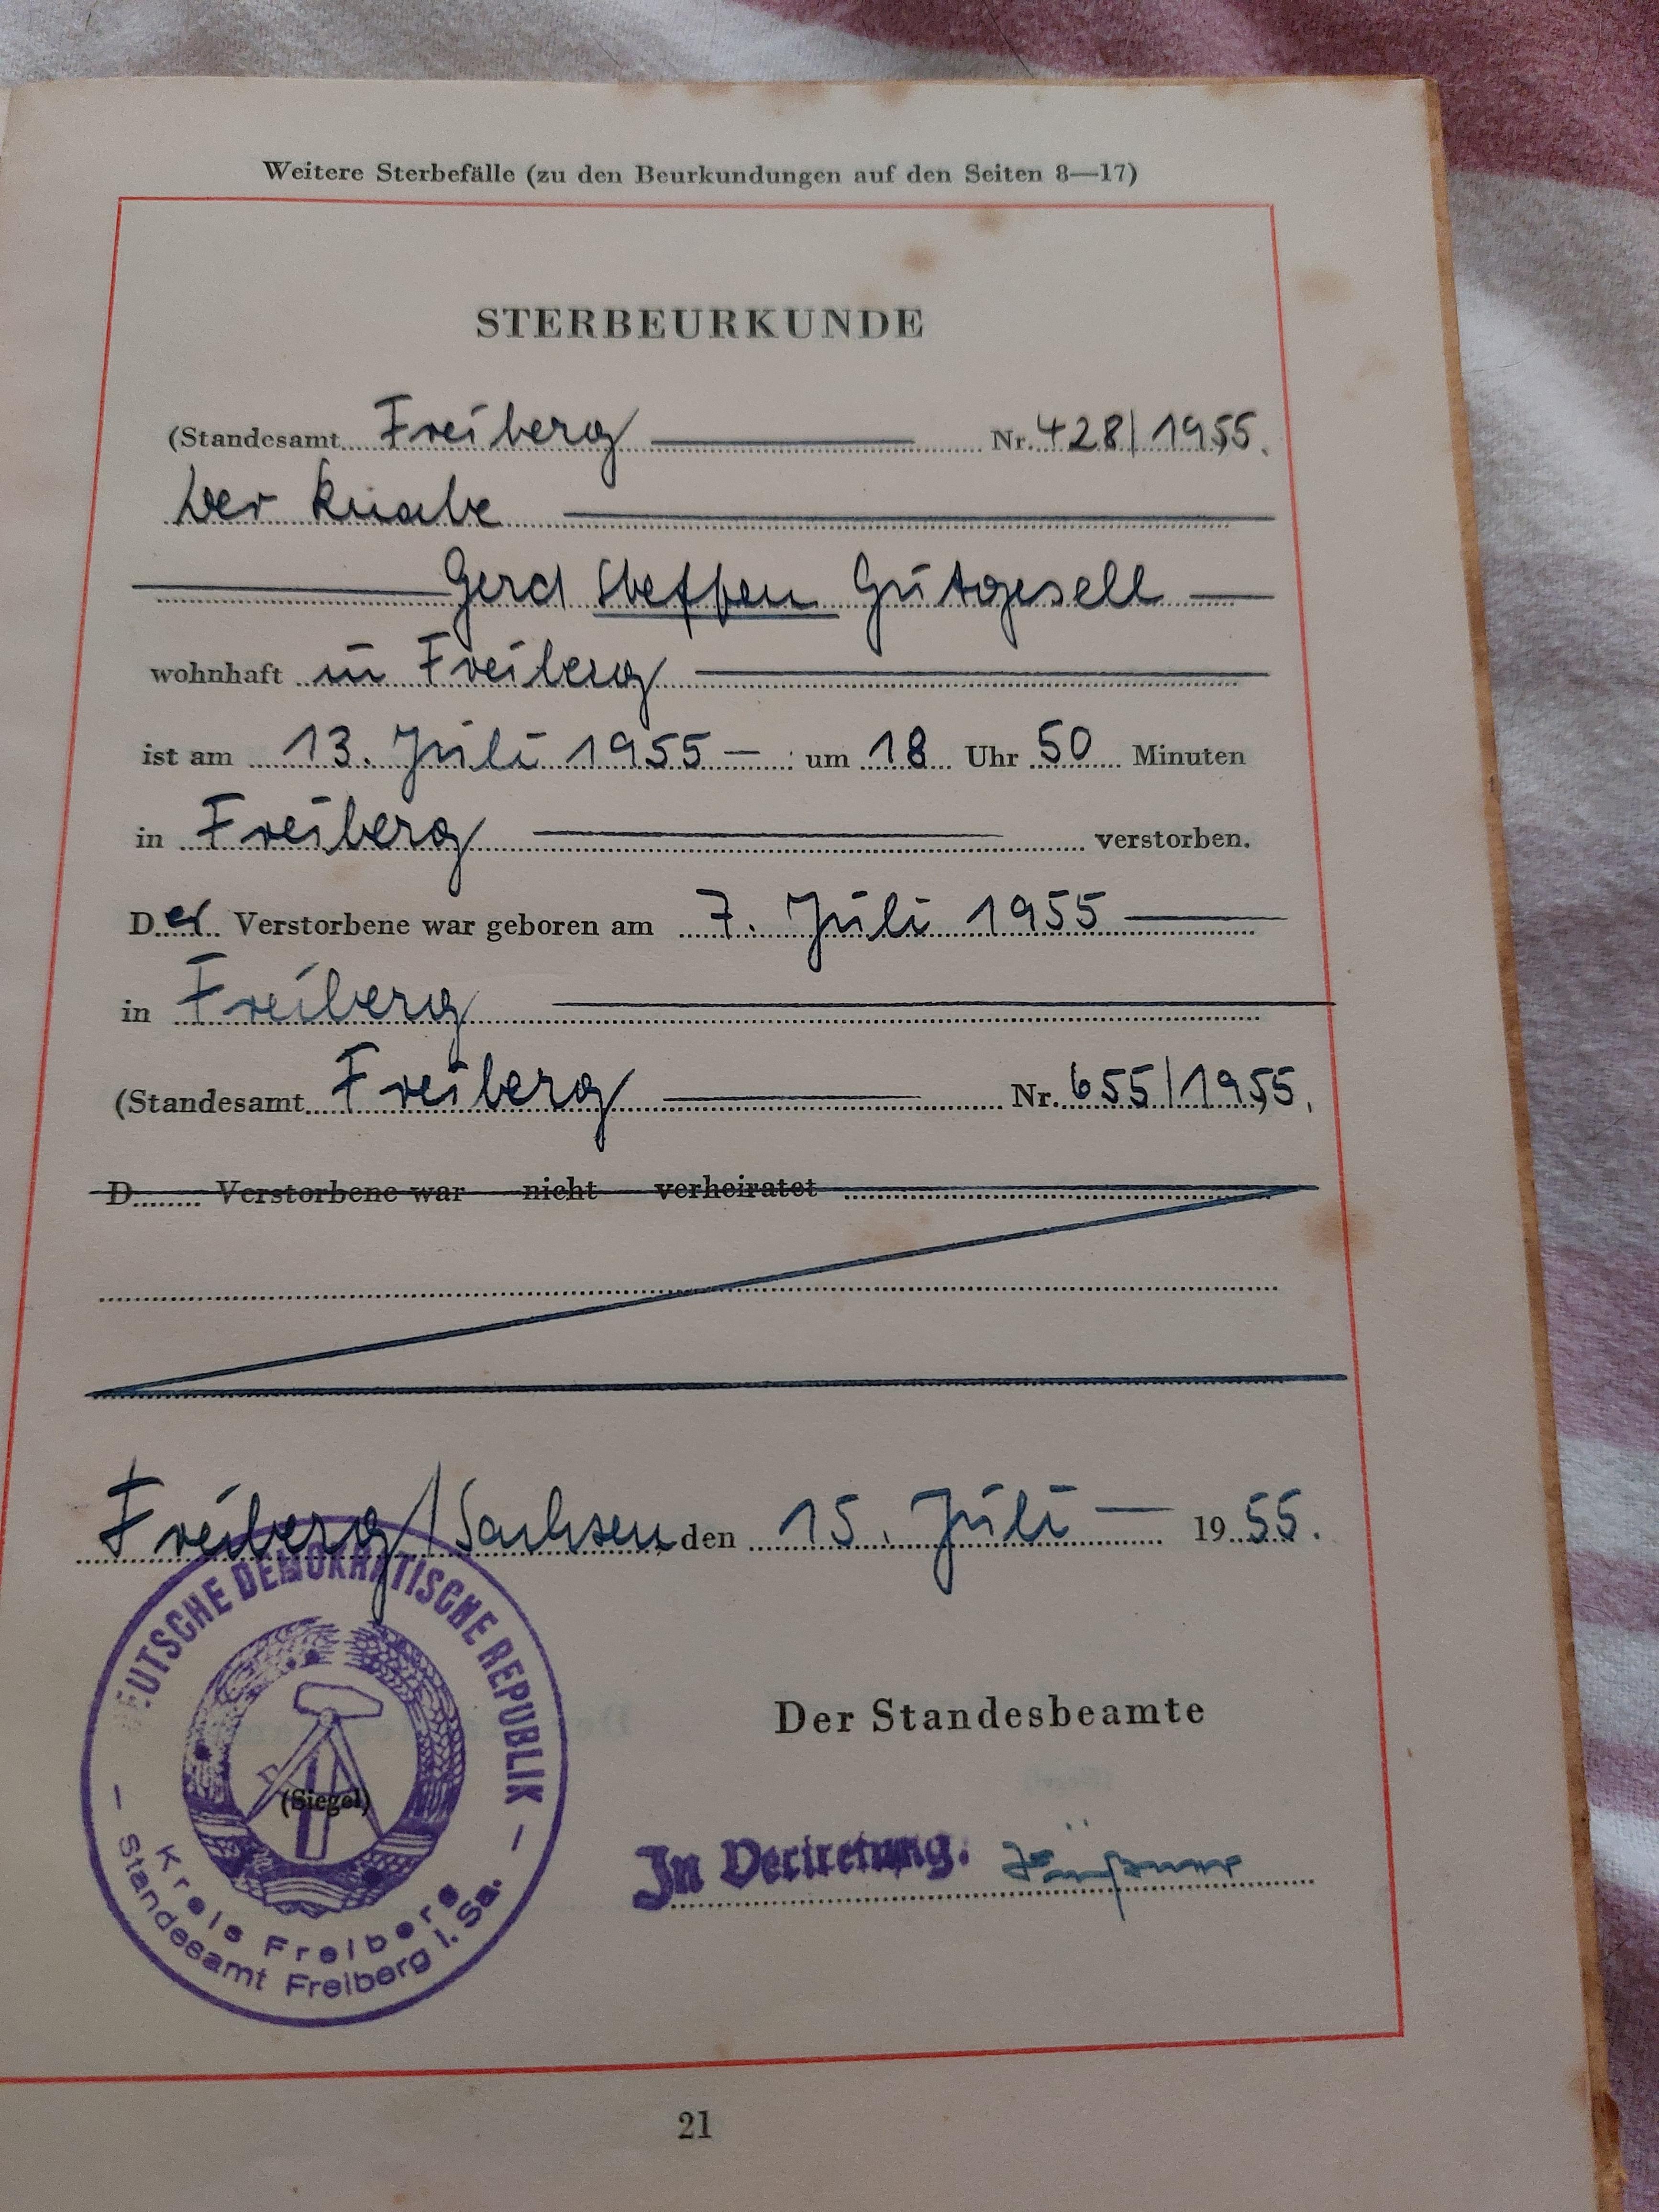 Weitere Sterbefälle (zu den Beurkundungen auf den Seiten 8—17)
STERBEURKUNDE
(Standesamt Freiberg Nr. 428/1955.
Der Knabe
Gerd Steffen Gütgesell
wohnhaft in Freiberg
ist am 13. Juli 1955 — um 18 Uhr 50 Minuten
in Freiberg verstorben.
Der Verstorbene war geboren am 7. Juli 1955
in Freiberg
(Standesamt Freiberg Nr. 655/1955.
D Verstorbene war nicht verheiratet
Freiberg/Sachsen den 15. Juli — 1955.
DEUTSCHE DEMOKRATISCHE REPUBLIK
Der Standesbeamte
(Siegel)
In Vertretung:
Kreis Freiberg
Standesamt Freiberg i. Sa.
21